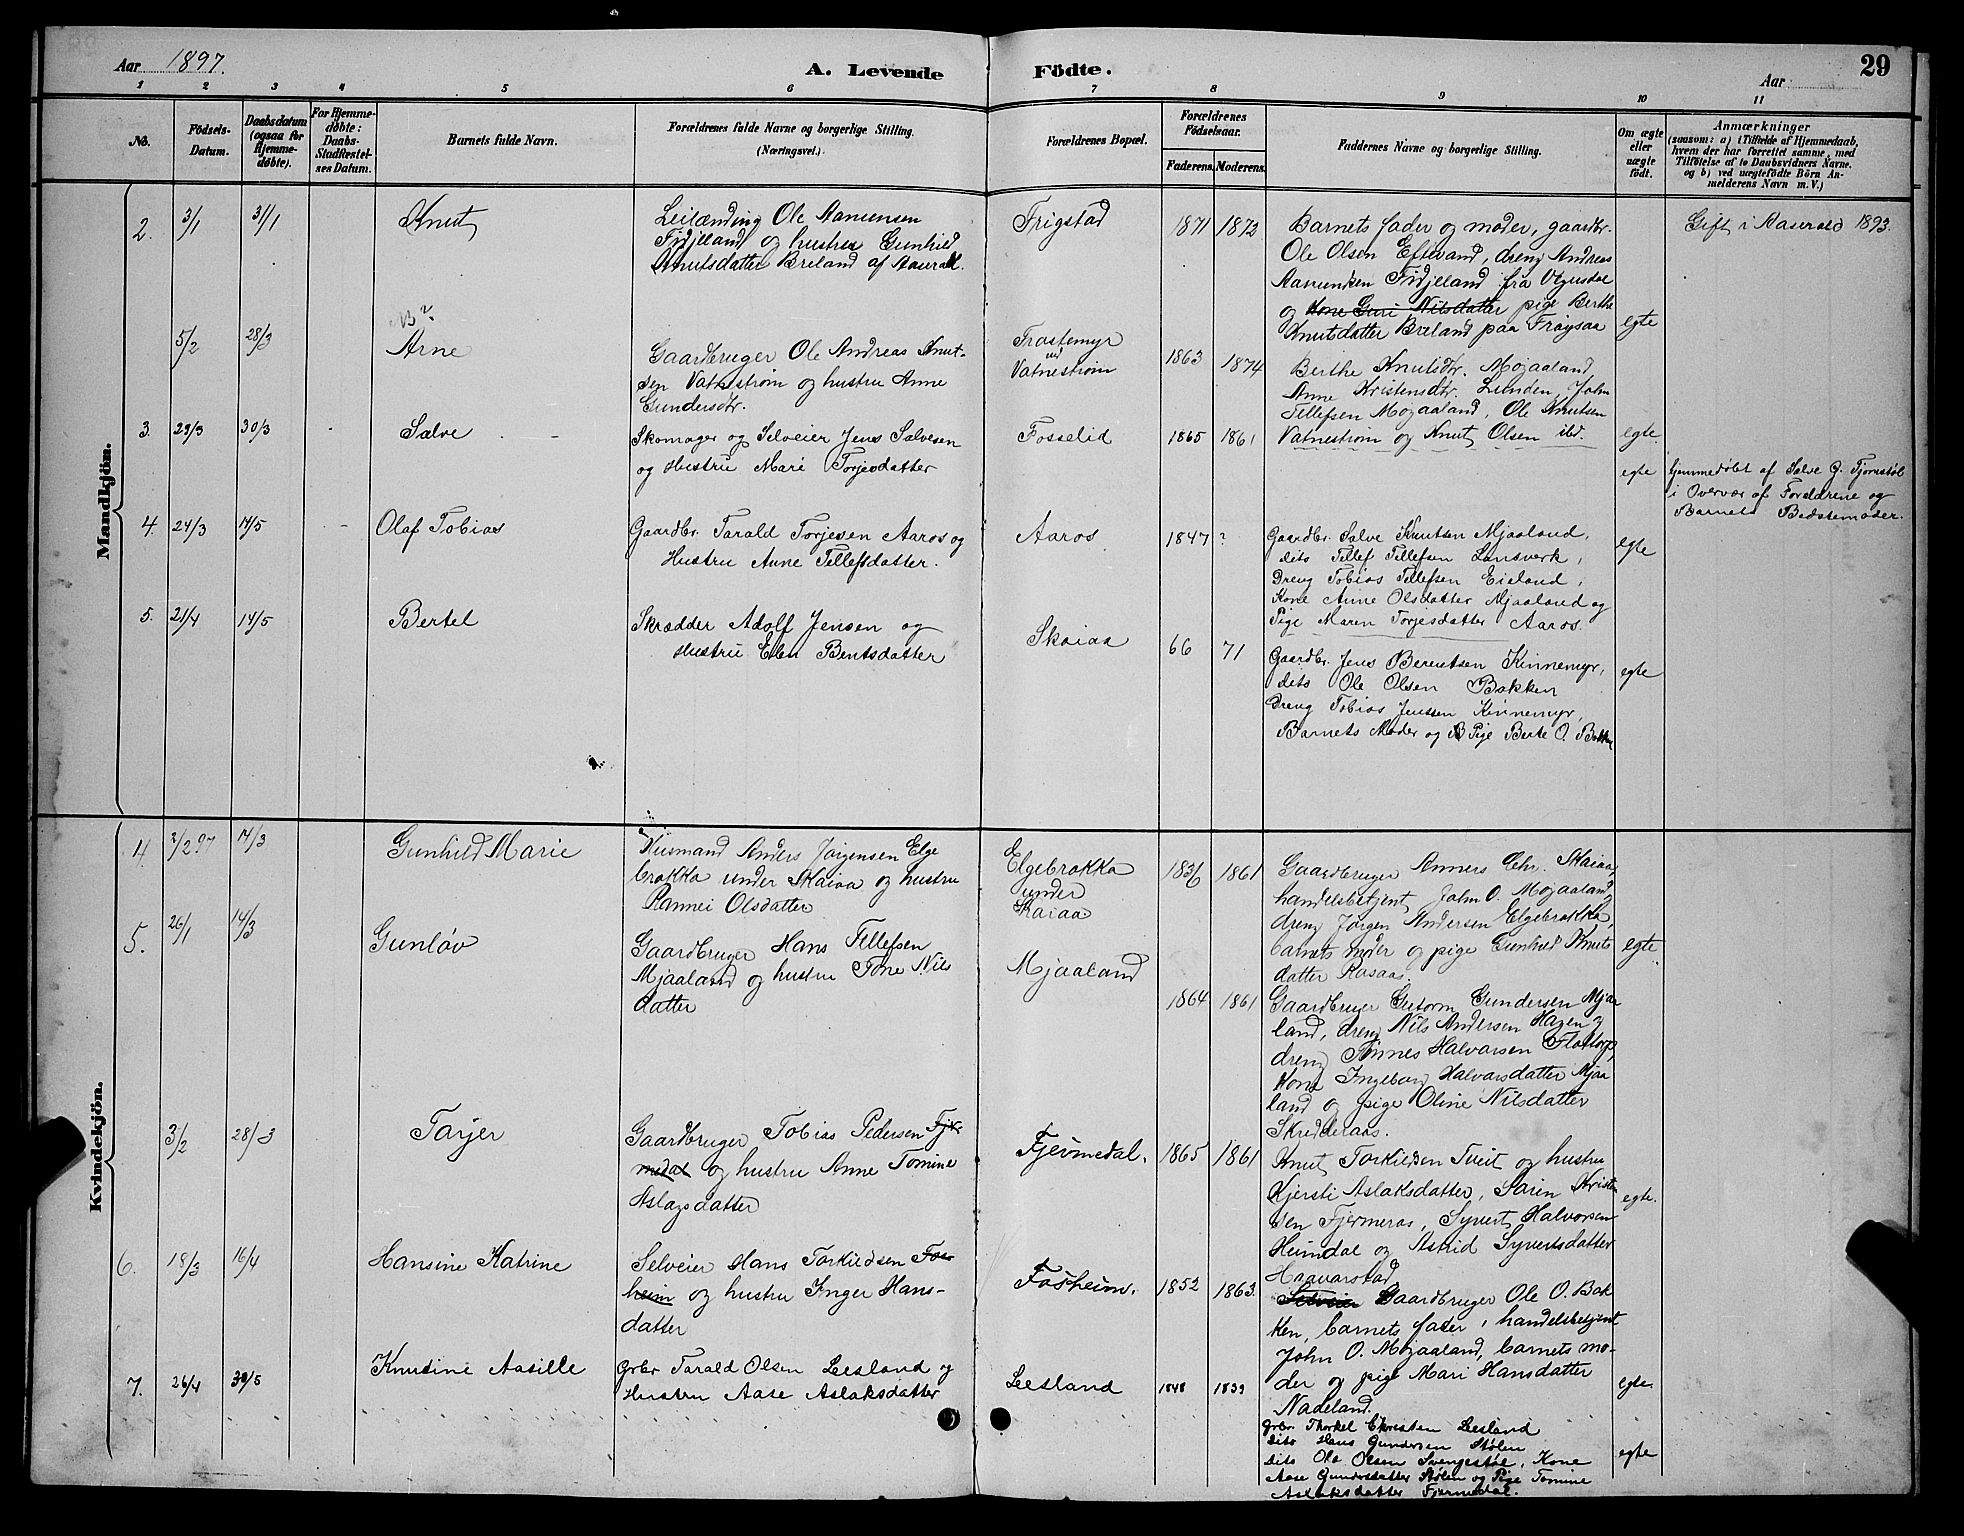 Aar 1897.
A. Levende Födte.
Aar
29
1 2 3 4 5 6 7 8 9 10 11
No.
Födsels-Datum.
Daabsdatum (ogsaa for Hjemmedøbte).
For Hjemmedøbte: Daabs-Stadfæstelses Datum.
Barnets fulde Navn.
Forældrenes fulde Navne og borgerlige Stilling. (Næringsvei.)
Forældrenes Bopæl.
Forældrenes Fødselsaar.
Faderens. Moderens.
Faddernes Navne og borgerlige Stilling.
Om ægte eller uægte født.
Anmærkninger
(saasom: a) i Tilfælde af Hjemmedaab,
hvem der har forrettet samme, med
Tilföielse af to Daabsvidners Navne.
og b) ved uægtefödte Börn Anmelderens Navn m. V.)
Mandkjön.
2. 3/1 31/1 Knut
Leilænding Ole Aanensen
Fidjelland og hustru Gunhild
Knutsdatter Breland af Aaseral.
Frigstad 1871 1872
Barnets fader og moder, gaardbr.
Ole Olsen Eftevand, dreng Andreas
Aanensen Fidjelland fra Vegusdal
og Kone Guri Nilsdatter pige Berthe
Knutsdatter Breland paa Frøysaa
egte
Gift i Aaserald 1893.
5/2 28/3 Arne
Gaardbruger Ole Andreas Knut-
sen Vatnestrøm og hustru Anne
Gundersdtr.
Frostemyr
ved
Vatnestrøm
1863 1874
Berthe Knutsdtr. Mojaaland
Anne Kristensdtr. Lunden, John
Tellefsen Mojaaland, Ole Knutsen
Vatnestrøm og Knut Olsen ibd.
egte.
3. 29/3 30/3 - Salve
Skomager og Selveier Jens Salvesen
og Hustru Mari Torjesdatter
Fosselid 1865 1861
egte
hjemmedøbt af Salve G. Tjomstøl
i Overvær af Forældrene og
Barnets Bedstemoder.
4. 24/3 14/5 - Olaf Tobias
Gaardbr. Tarald Torjesen Aaros og
Hustru Anne Tellefsdatter.
Aaros 1847 ?
Gaardbr. Salve Knutsen Mjaaland,
dito Tellef Tellefsen Lonsverk,
Dreng Tobias Tellefsen Eieland,
Kone Anne Olsdatter Mjaaland og
Pige Maren Torjesdatter Aaros.
egte
5. 21/4 14/5 Bertel
Skrædder Adolf Jensen og
Hustru Elen Bentsdatter
Skaiaa 66 71
Gaardbr. Jens Berentsen Kinnemyr,
dito Ole Olsen Bakken
Dreng Tobias Jenssen Kinnemyr,
Barnets Moder og Pige Berte O. Bakken
egte
Kvindekjön.
4 2/2 97 14/3 Gunhild Marie
Husmand Anders Jørgensen Elge
brokka under Skaiaa og hustru
Rannei Olsdatter
Elgebrokka
under
Skaiaa
1836 1861
Gaardbruger Anners Chr. Skaiaa,
handelsbetjent John O. Mojaaland,
dreng Jørgen Andersen Elgebrokka,
barnets moder og pige Gunhild Knuts
datter Rosaas.
egte
5. 26/1 14/3 Gunløv
Gaardbruger Hans Tellefsen
Mjaaland og hustru Tone Nils
datter
Mjaaland
1864 1861
Gaardbruger Gutorm Gundersen Mjaa
land, dreng Nils Andersen Hagen og
dreng Tønnes Halvarsen Flottorp,
Kone Ingeborg Halvarsdatter Mjaa
land og pige Oline Nilsdatter
Skredderaas.
3/2 28/3 Tarjer
Gaardbruger Tobias Pedersen Fjer-
medal og hustru Anne Tomine
Aslagsdatter
Fjermedal. 1865 1861
Knut Torkildsen Tveit og hustru
Kjersti Aslaksdatter, Søren Kristen
sen Fjermeros, Syvert Halvorsen
Heimdal og Astrid Syvertsdatter
Haavarstad
egte.
6. 18/3 16/4 Hansine Katrine
Selveier Hans Torkildsen Fos
heim og hustru Inger Hans-
datter
Fosheim. 1852 1863.
Selveier Gaardbruger Ole O. Bak
ken, barnets fader, handelsbetjent
John O. Mojaaland, barnets mo-
der og pige Mari Hansdatter
Nadeland.
egte.
7. 26/4 30/5 Knudine Aasille
Grbr Tarald Olsen Leesland og
Hustru Aase Aslaksdatter
Leesland 1848 1839
Grbr. Thorkel Christen Leesland
dito Hans Gundersen Stølen
dito Ole Olsen Svengestøl, Kone
Aase Gundersdatter Stølen og Pige Tomine
Aslaksdatter Fjermedal.
egte